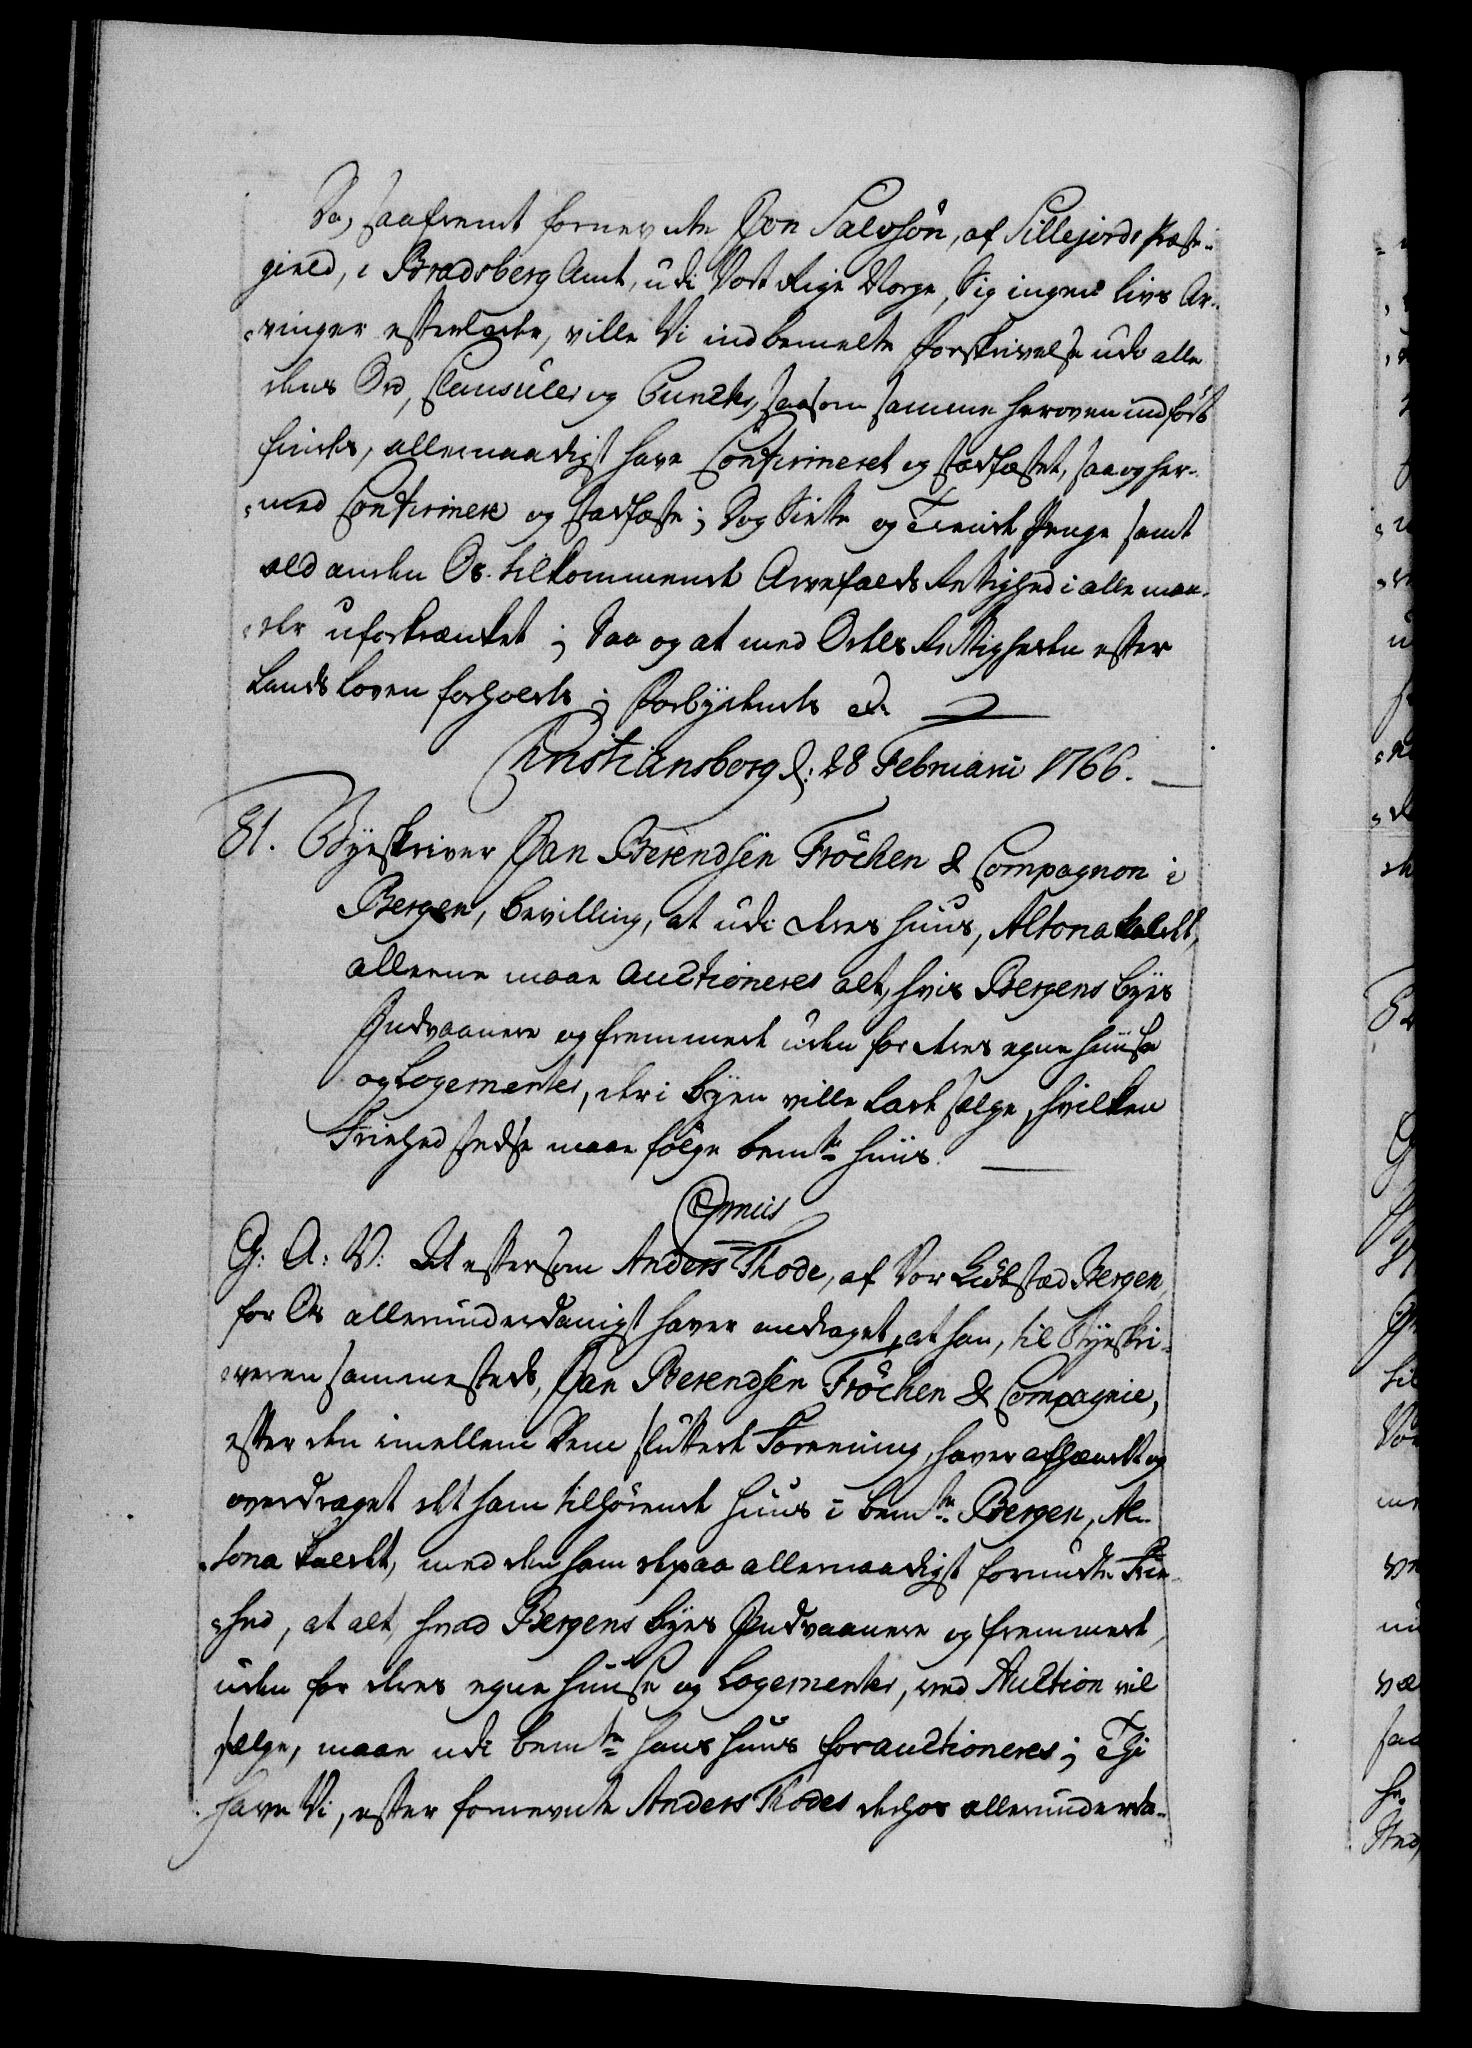 Da, saafremt fornevnte Jon Salvesøn, af Sillejords Præste-
gield, i Bradsberg Amt, udi Vort Rige Norge, sig ingen livs Ar-
vinger efterlader, ville Vi indbemelte Forskrivelse udi alle
dens Ord, Clausuler og Puncter, saasom samme heroven indført
findes, allernaadigst have Confirmeret og stadfæstet, saa og her-
med Confirmere og stadfæste; Dog Siette og Tiende Penge samt
ald anden Os tilkommende Arvefalds Rettighed i alle maa-
der uforkrænket; Saa og at med Odels Rettigheden efter
Lands Loven forholdes; Forbydendes etc.
Christiansborg d: 28 Februarii 1766.
81. Byeskriver Jan Berendsen Frøchen & Compagnon i
Bergen, bevilling, at udi deres huus, Altona kaldet,
alleene maae auctioneres alt, hvis Bergens Byes
Indvaanere og fremmede uden for deres egne huuse
og Logementer, der i byen ville lade sælge, hvilken
Friehed stedse maae følge bemte huus.
G: A: V: At eftersom Anders Thode, af Vor Kiøbstad Bergen,
for Os allerunderdanigst haver andraget, at han, til Byeskri-
veren sammesteds, Jan Berendsen Frøchen & Compagnie,
efter den imellem dem sluttede Forening, haver afhændet og
overdraget det ham tilhørende huus i bemte Bergen, Al-
tona kaldet, med den ham derpaa allernaadigst forundte Frie-
hed, at alt, hvad Bergens Byes Indvaanere og fremmede,
uden for deres egne huuse og Logementer, ved Auction vil
sælge, maae udi bemte hans huus forauctioneres; Thi
have Vi, efter fornevnte Anders Thodes derhos allerunderda-